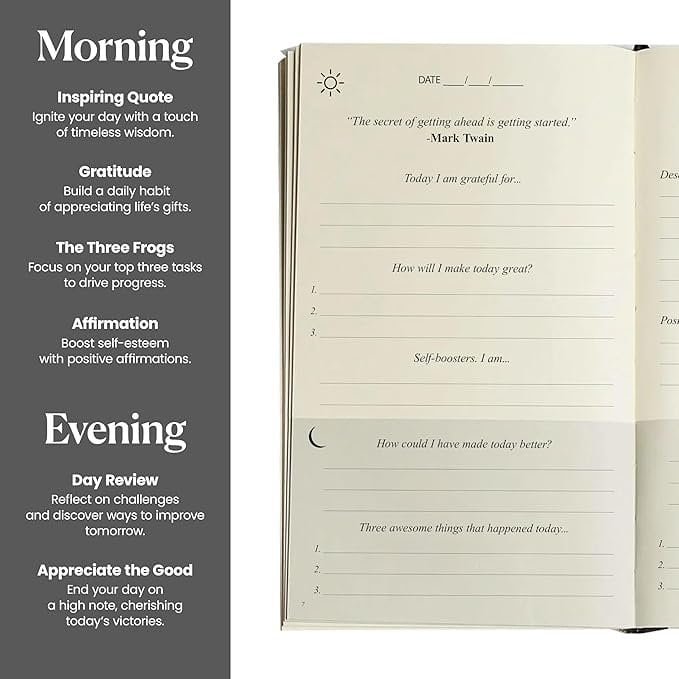 Morning
Inspiring Quote
Ignite your day with a touch
of timeless wisdom.
Gratitude
Build a daily habit
of appreciating life's gifts.
The Three Frogs
Focus on your top three tasks
to drive progress.
Affirmation
Boost self-esteem
with positive affirmations.
Evening
Day Review
Reflect on challenges
and discover ways to improve
tomorrow.
Appreciate the Good
End your day on
a high note, cherishing
today's victories.
DATE ___/___/_____
"The secret of getting ahead is getting started."
-Mark Twain
Today I am grateful for...
How will I make today great?
1.
2.
3.
Self-boosters. I am...
How could I have made today better?
Three awesome things that happened today...
1.
2.
3.
7
1.
2.
3.